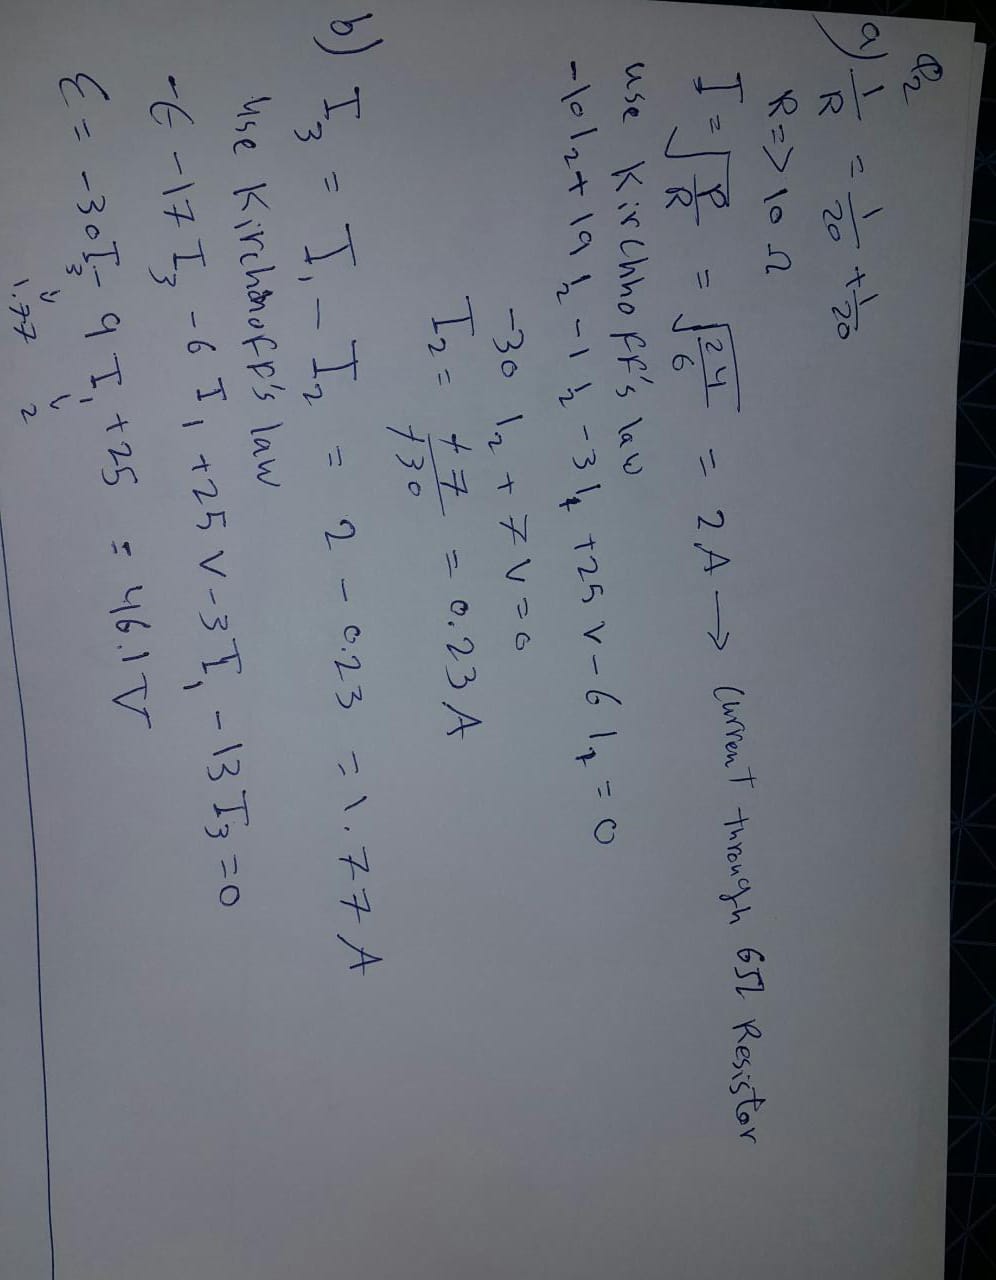 Q2
a) 1/R = 1/20 + 1/20
R => 10 Ω
I = √(P/R) = √(24/6) = 2A → Current through 6Ω Resistor
use Kirchhoff's law
-10I₂ + 19I₂ - 1I₂ - 3I₁ + 25V - 6I₁ = 0
-30I₂ + 7V = 0
I₂ = +7/+30 = 0.23A
b) I₃ = I₁ - I₂ = 2 - 0.23 = 1.77A
Use Kirchhoff's law
-ε - 17I₃ - 6I₁ + 25V - 3I₁ - 13I₃ = 0
ε = -30I₃ - 9I₁ + 25 = 46.1V
1.77 2